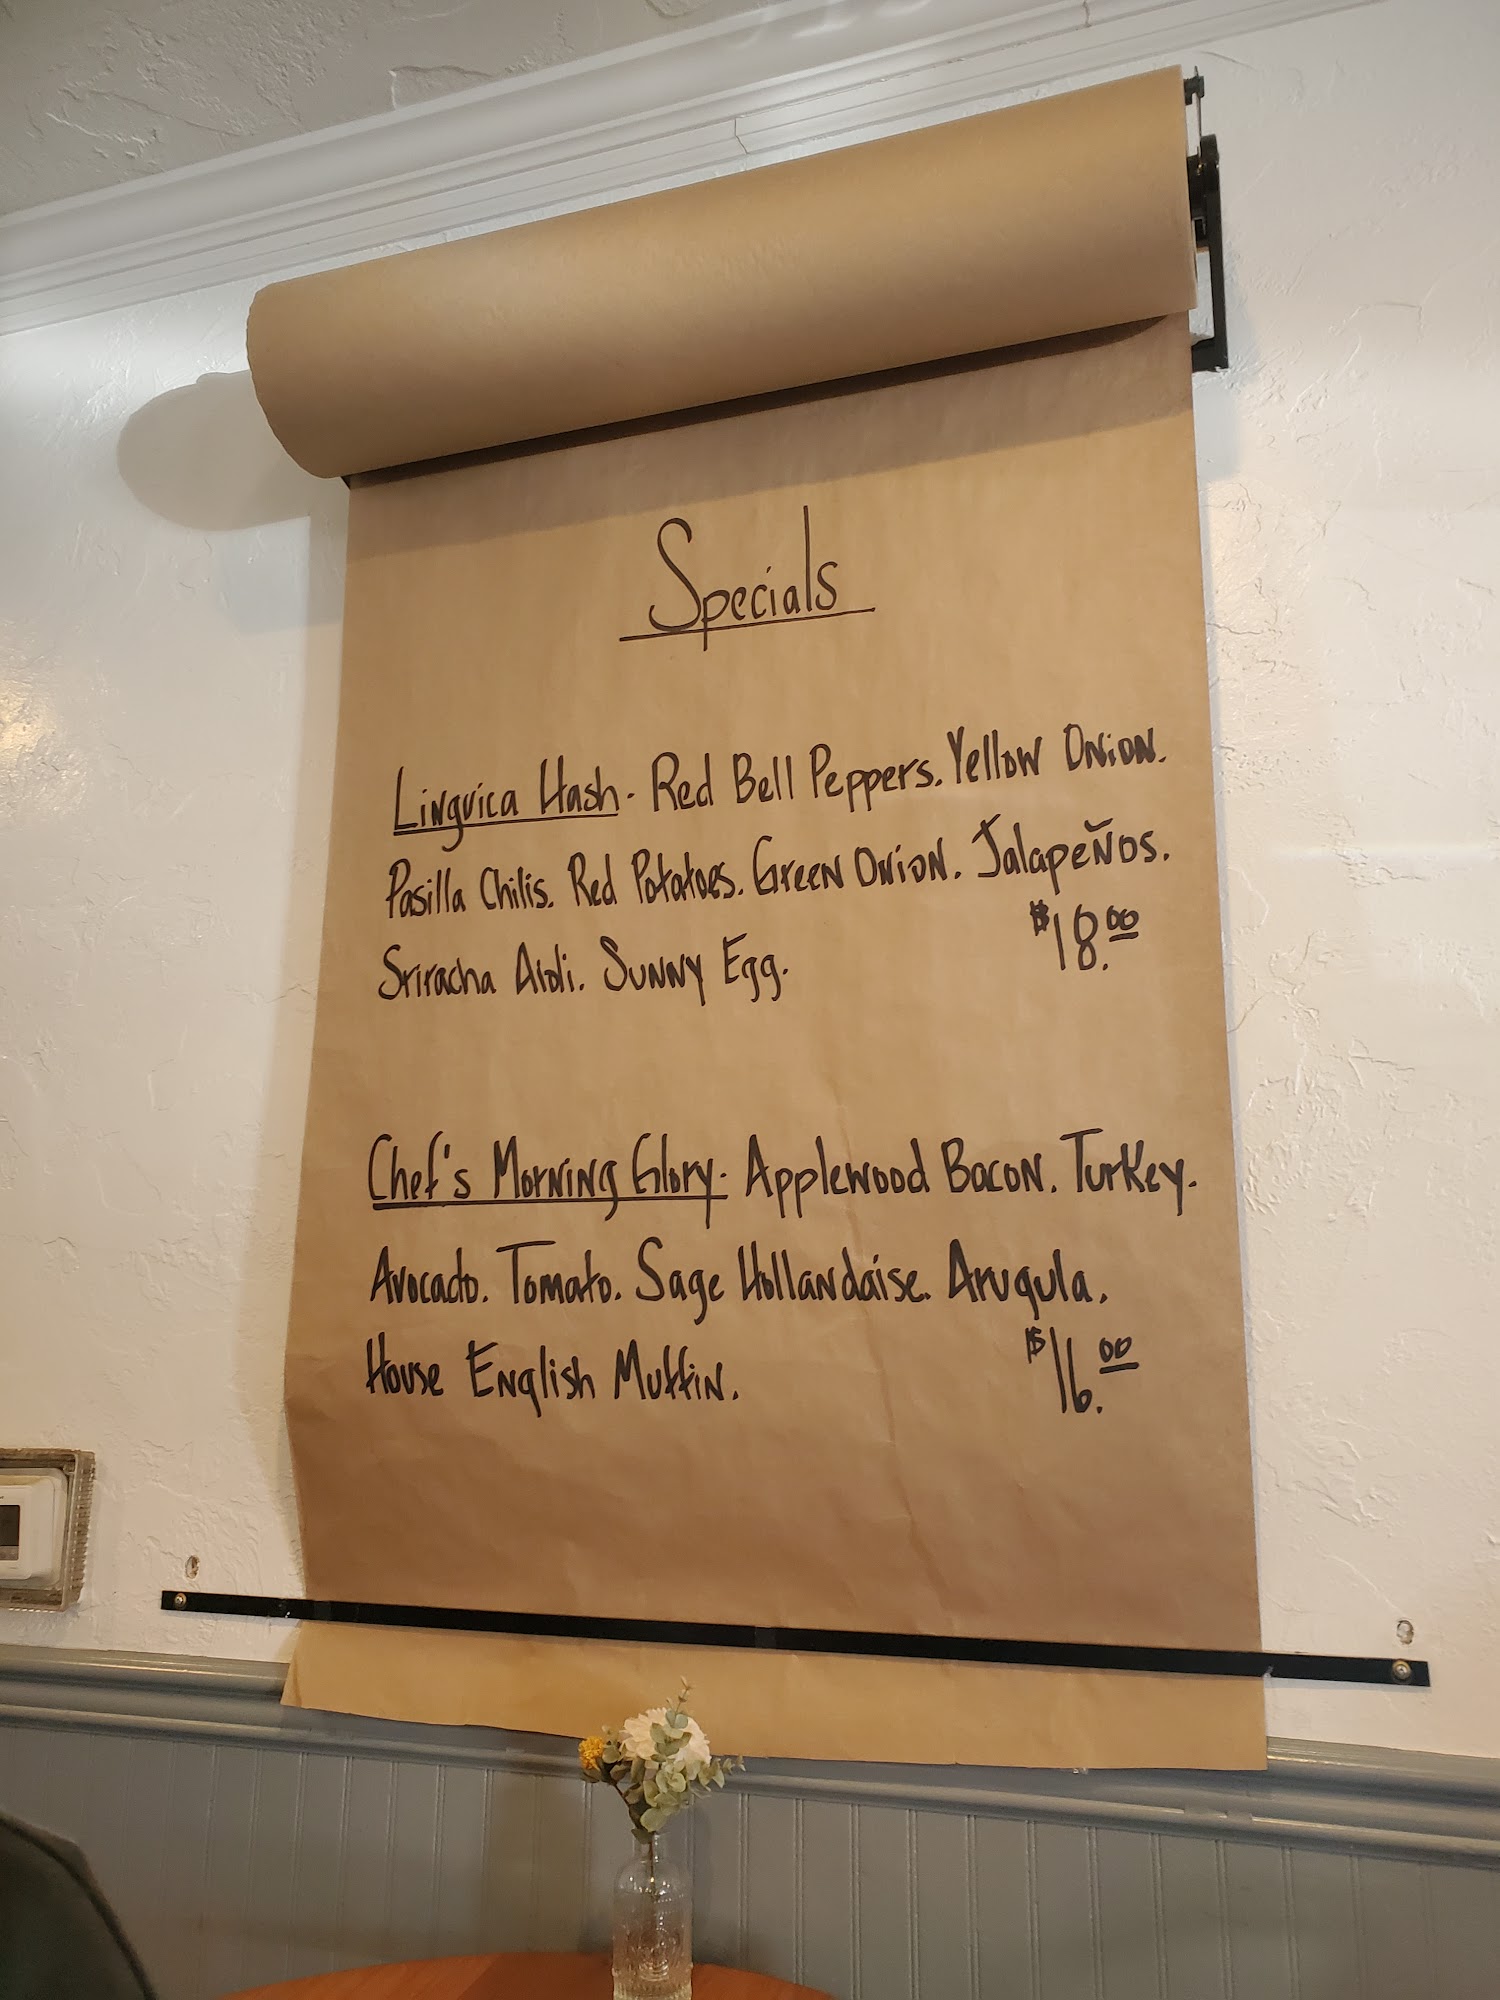 Specials
Linguica Hash. Red Bell Peppers. Yellow Onion.
Pasilla Chilis. Red Potatoes. Green Onion. Jalapeños.
Sriracha Aioli. Sunny Egg. $18.00
Chef's Morning Glory. Applewood Bacon. Turkey.
Avocado. Tomato. Sage Hollandaise. Arugula.
House English Muffin. $16.00